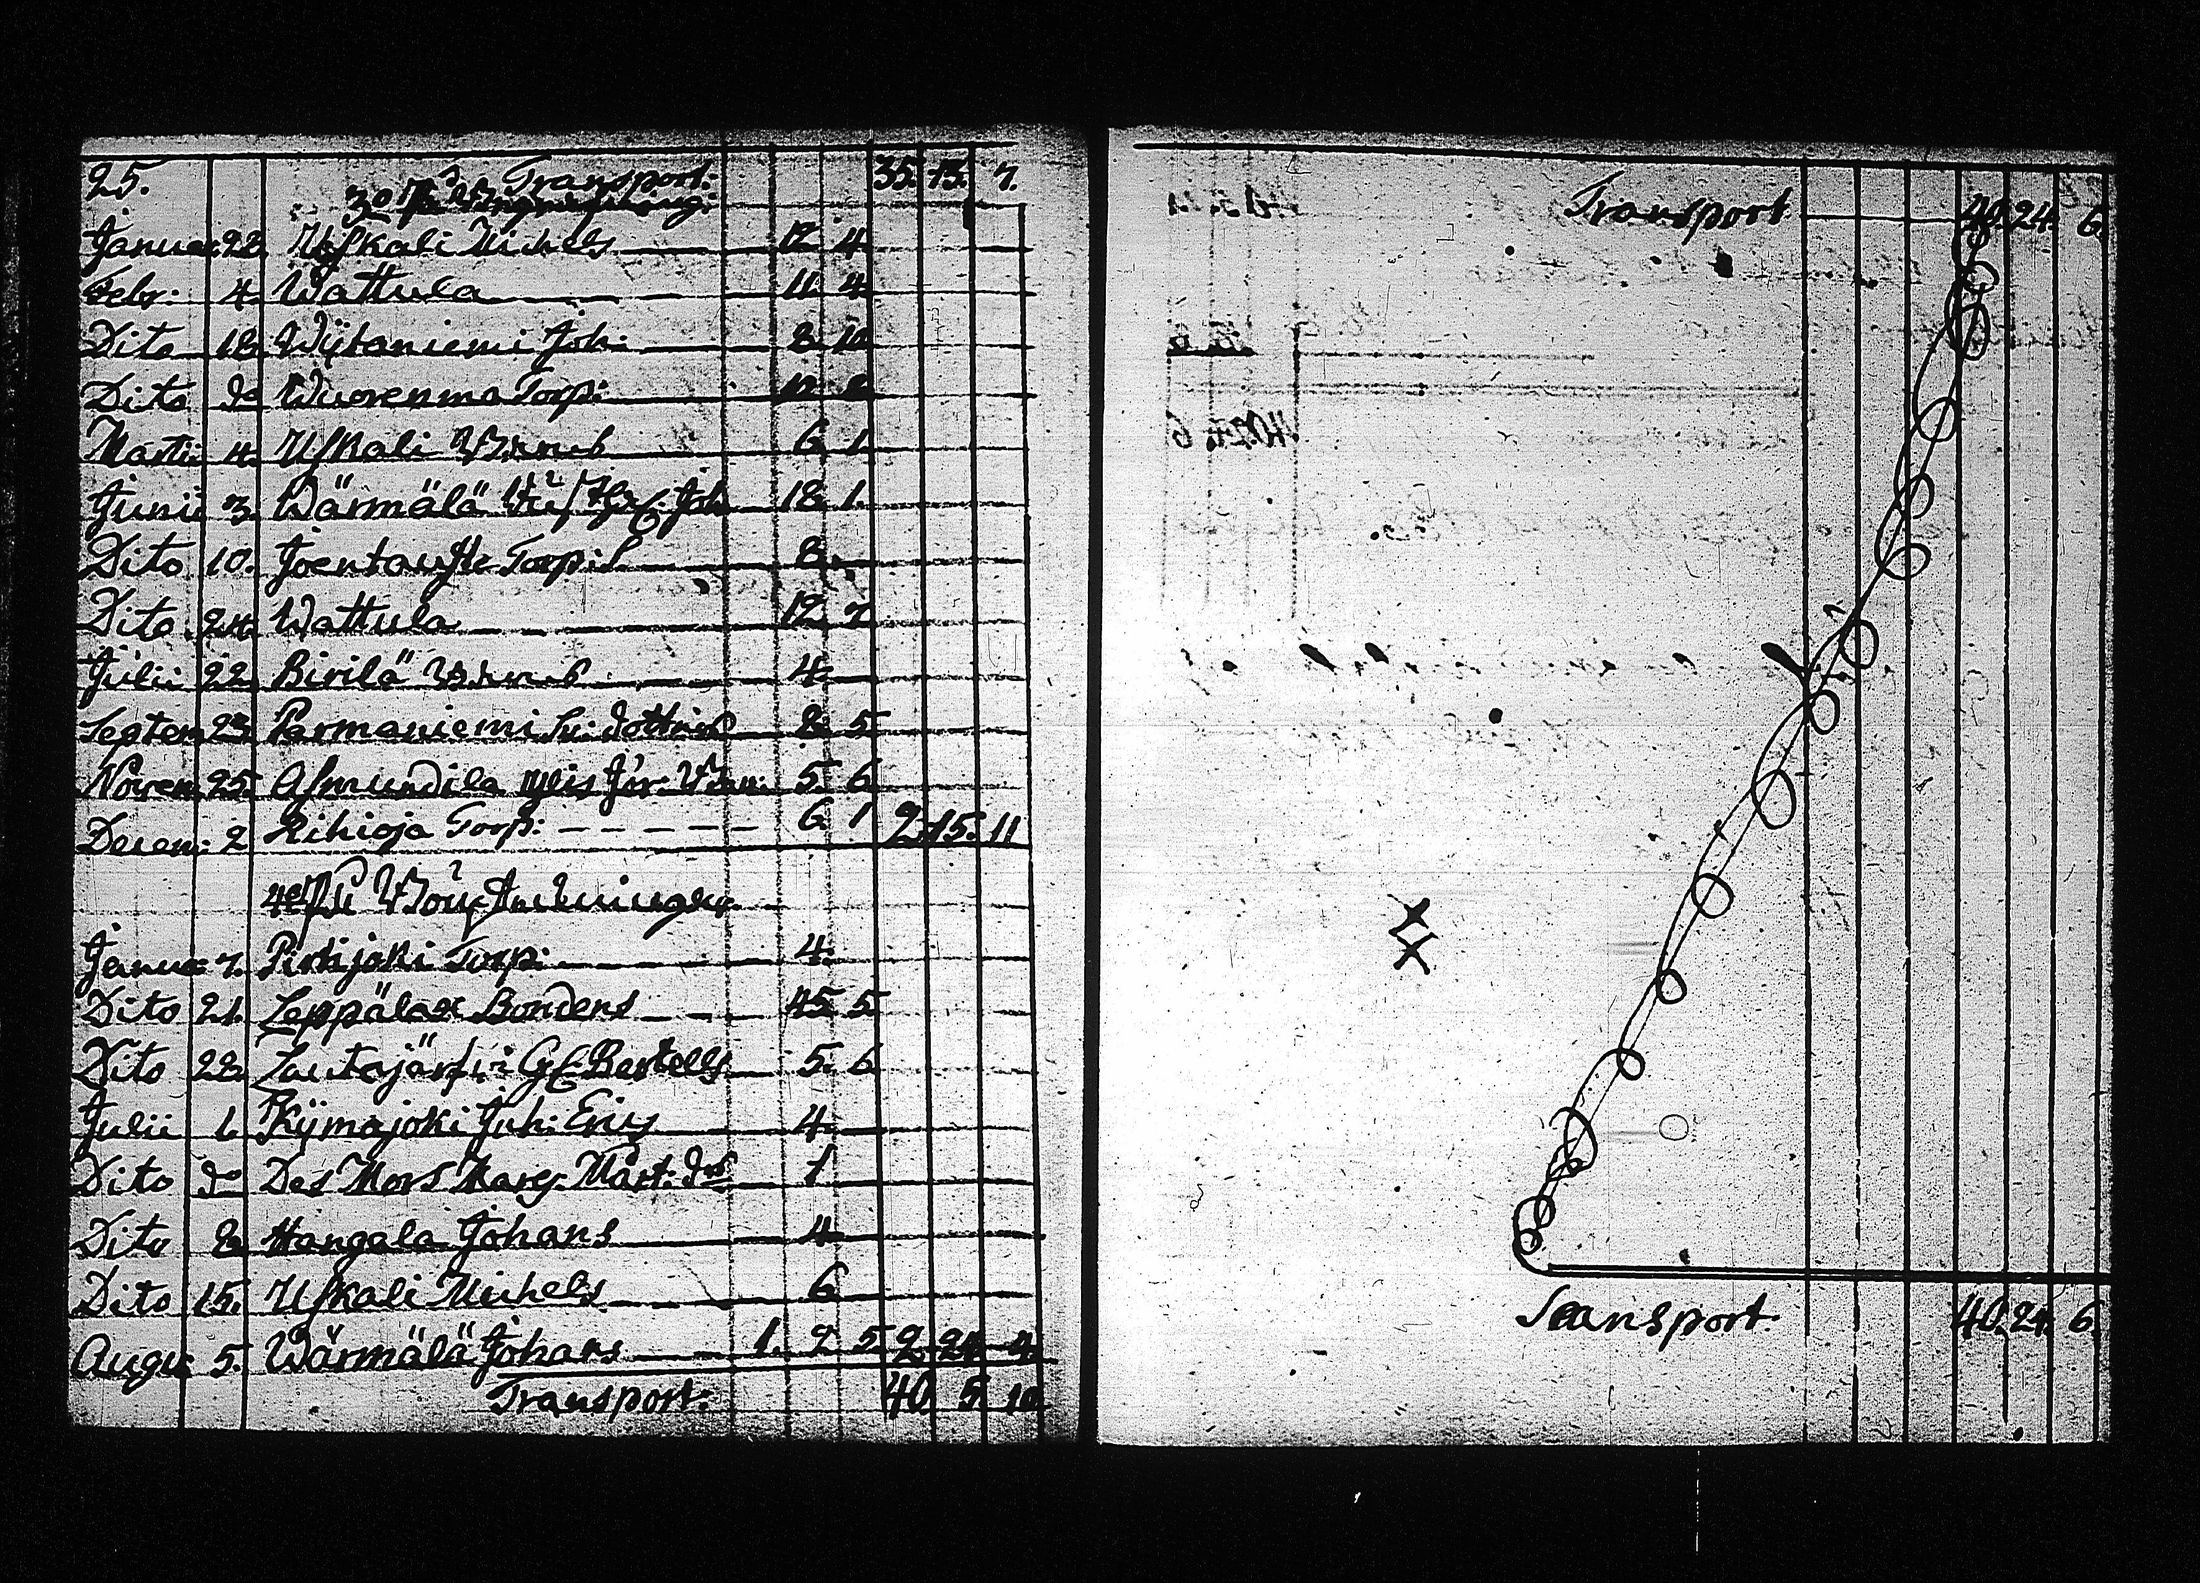 25. Transport. 35. 13. 7.
30
Januar. 28. Uskali Michels 12. 4
Febr: 4. Wattula 11. 4.
Dito 18. Wijtaniemi Joh: 8. 10
Dito do Wuorenma Torp:
Martii 4. Uskali 6. 1.
Junii 3. Wärmälä Joh 18. 1.
Dito 10. Joentausta Torp: 8.
Dito 24. Wattula 12. 7.
Julii 22. Birilä 4.
Septem 23. Parmaniemi 8. 5
Novem 25. Asmundila 5. 6
Decem: 2. Rihioja Torp: 6. 1 2. 15. 11
4
Januar: 7. Pirkjoki Torp: 4.
Dito 21. Leppälax Bondens 45. 5
Dito 28. Lautajärfwi Bertells 5. 6
Julii 1. Kijmajoki Joh: Erics 4.
Dito do Des Mors Marg. Märt: 1
Dito 8. Hangala Johans 4
Dito 15. Uskali Michels 6
Augu: 5. Wärmälä Johans 1. 2 5 2. 24. 4.
Transport. 40. 5. 10.
Transport 40. 24. 6.
Transport. 40. 24. 6.